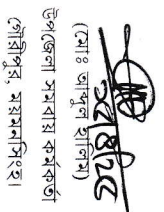 (মোঃ আব্দুল হালিম)
উপজেলা সমবায় কর্মকর্তা
গৌরীপুর, ময়মনসিংহ।